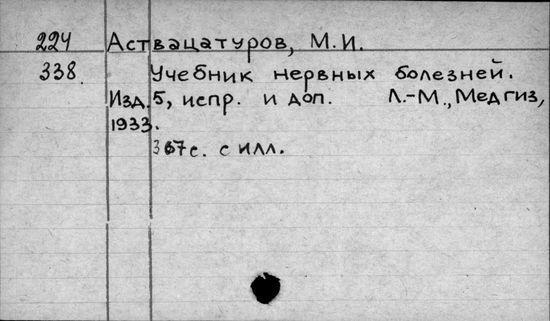 224 Аствацатуров, М.И.
338 Учебник нервных болезней.
Изд. 5, испр. и доп. Л.-М., Медгиз,
1933.
367с. с илл.